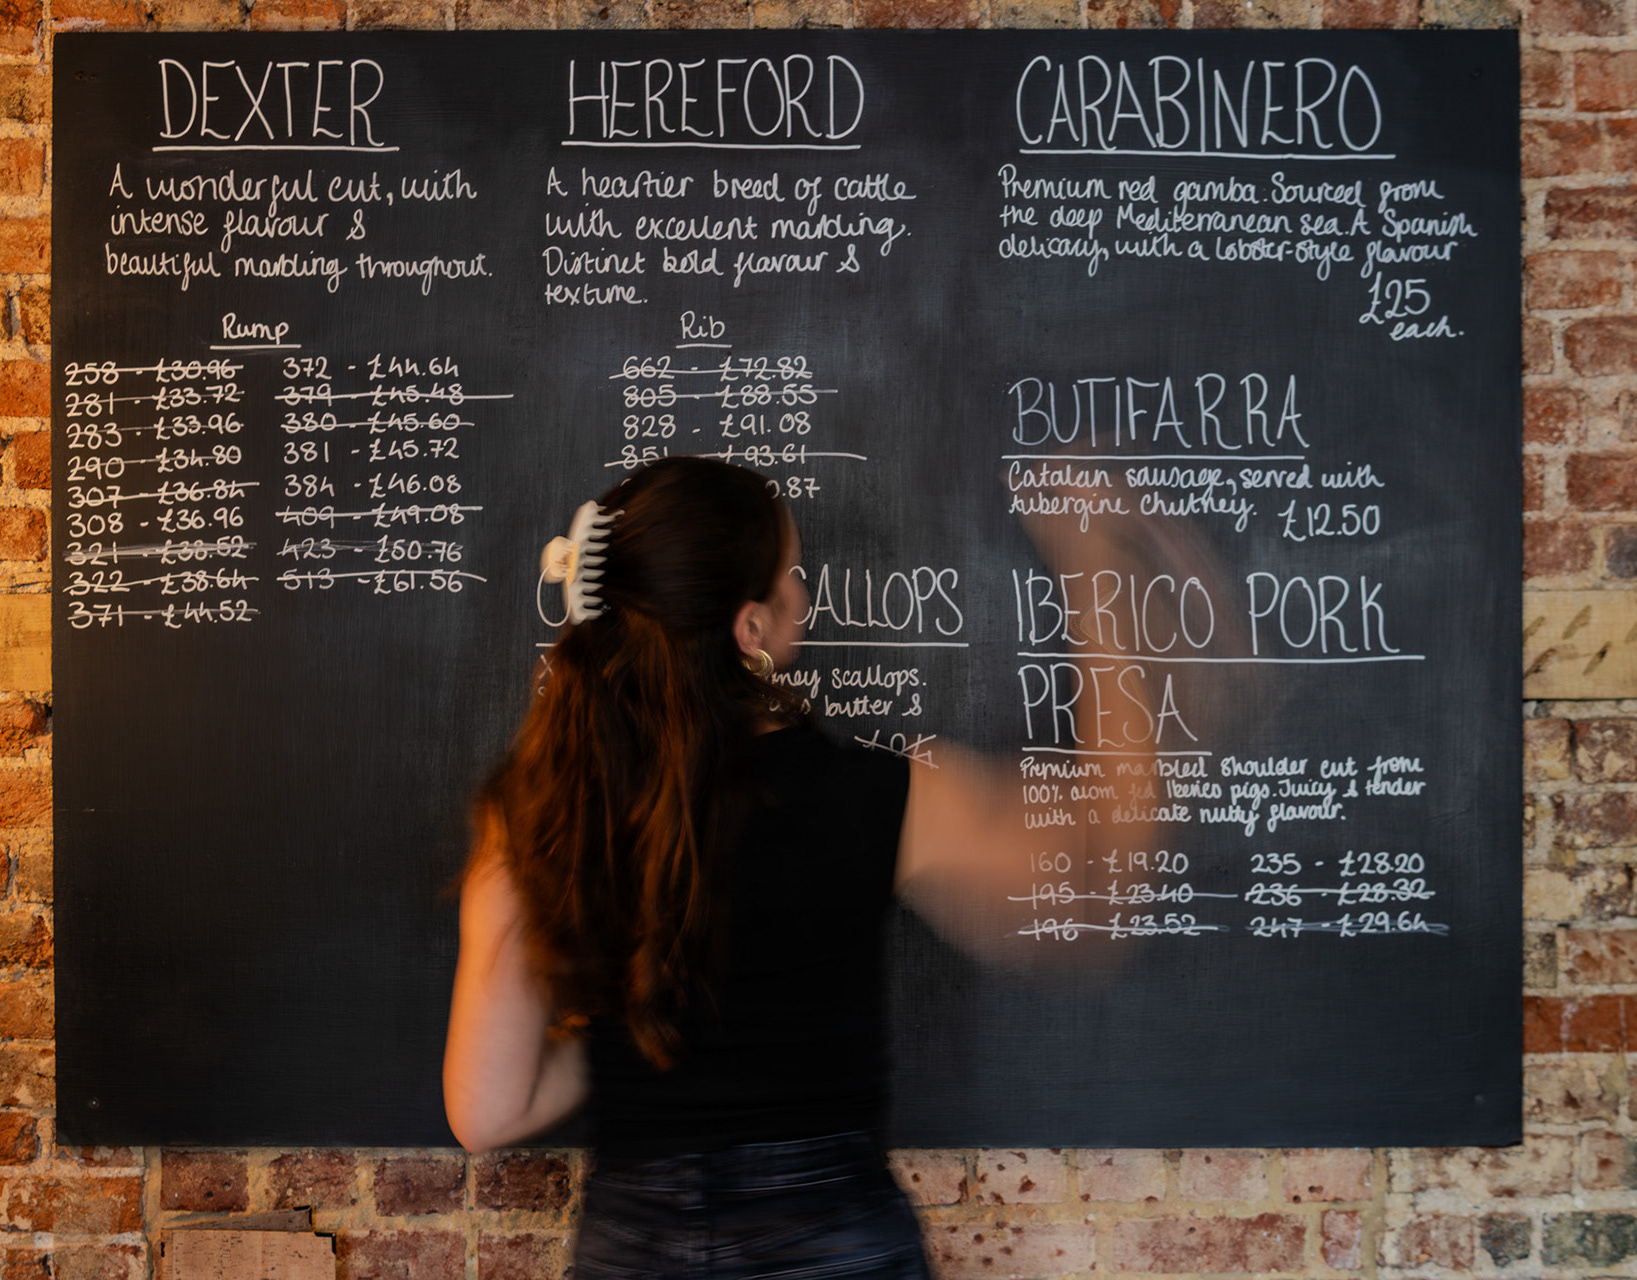 DEXTER
A wonderful cut, with
intense flavour &
beautiful marbling throughout.
Rump
258 - £30.96
281 - £33.72
283 - £33.96
290 - £34.80
307 - £36.84
308 - £36.96
321 - £38.52
322 - £38.64
371 - £44.52
372 - £44.64
379 - £45.48
380 - £45.60
381 - £45.72
384 - £46.08
409 - £49.08
423 - £50.76
513 - £61.56
HEREFORD
A heartier breed of cattle
with excellent marbling.
Distinct bold flavour &
texture.
Rib
662 - £72.82
805 - £88.55
828 - £91.08
851 £93.61
.87
SCALLOPS
scallops.
butter &
CARABINERO
Premium red gamba. Sourced from
the deep Mediterranean sea. A Spanish
delicacy, with a lobster-style flavour
£25
each.
BUTIFARRA
Catalan sausage, served with
Aubergine chutney. £12.50
IBERICO PORK
PRESA
Premium marbled shoulder cut from
100% acorn fed Iberico pigs. Juicy & tender
with a delicate nutty flavour.
160 - £19.20
195 - £23.40
196 - £23.52
235 - £28.20
236 - £28.32
247 - £29.64